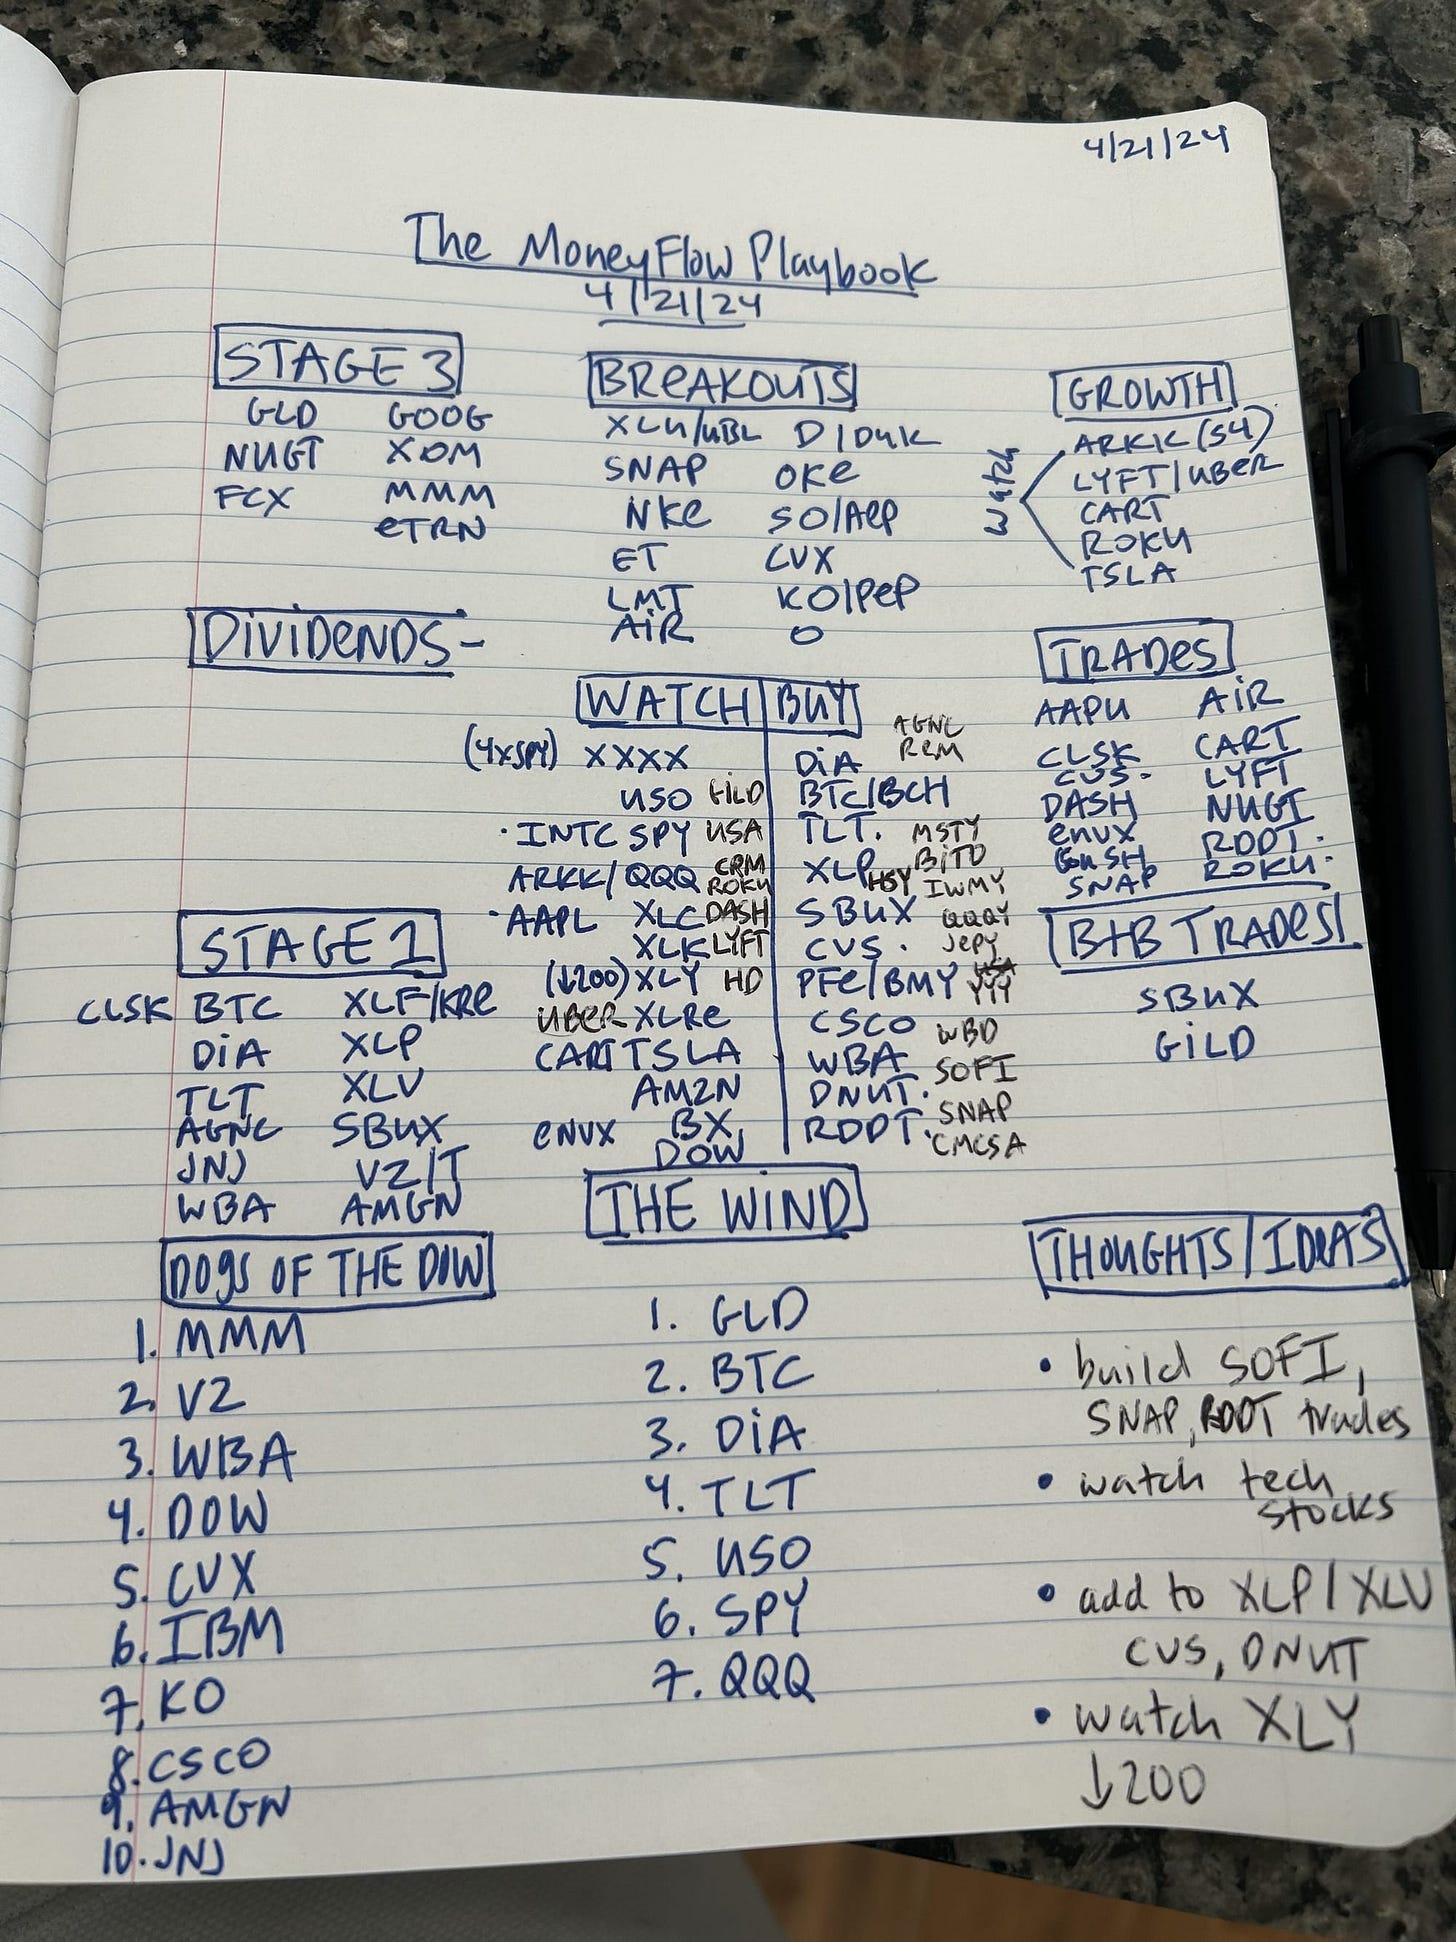 4/21/24
The MoneyFlow Playbook
4/21/24
STAGE 3
GLD GOOG
NUGT XOM
FCX MMM
ETRN
BREAKOUTS
XLU/UBL D/DUK
SNAP OKE
NKE SO/AEP
ET CVX
LMT KO/PEP
AIR O
GROWTH
Watch
ARKK (54)
LYFT/UBER
CART
ROKU
TSLA
DIVIDENDS-
WATCH BUY
(4xSPY) XXXX
USO GILD
· INTC SPY USA
ARKK/QQQ CRM
ROKU
· AAPL XLC DASH
XLK LYFT
(↓200) XLY HD
UBER XLRE
CART TSLA
AMZN
ENVX BX
DOW
AGNC
REM
DIA
BTC/BCH
TLT. MSTY
XLP HSY BITO
IWMY
SBUX QQQY
CVS. JEPY
PFE/BMY YYY
CSCO WBD
WBA SOFI
DNUT.
SNAP
RDDT. CMCSA
TRADES
AAPU AIR
CLSK CART
CVS. LYFT
DASH NUGT
ENVX RDDT.
GUSH ROKU.
SNAP
B+B TRADES
SBUX
GILD
STAGE 1
CLSK BTC XLF/KRE
DIA XLP
TLT XLV
AGNC SBUX
JNJ VZ/T
WBA AMGN
DOGS OF THE DOW
1. MMM
2. VZ
3. WBA
4. DOW
5. CVX
6. IBM
7. KO
8. CSCO
9. AMGN
10. JNJ
THE WIND
1. GLD
2. BTC
3. DIA
4. TLT
5. USO
6. SPY
7. QQQ
THOUGHTS/IDEAS
• build SOFI,
SNAP, RDDT trades
• watch tech
stocks
• add to XLP/XLV
CVS, DNUT
• watch XLY
↓200